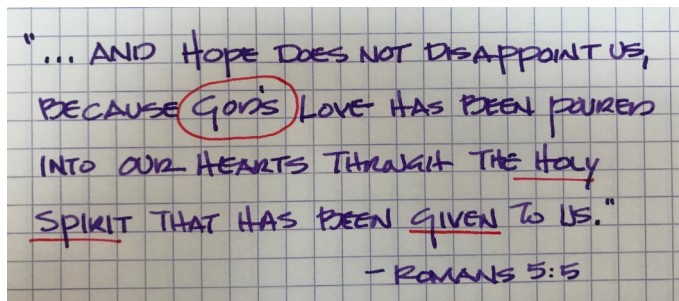 "... AND HOPE DOES NOT DISAPPOINT US,
BECAUSE GOD'S LOVE HAS BEEN POURED
INTO OUR HEARTS THROUGH THE HOLY
SPIRIT THAT HAS BEEN GIVEN TO US."
- ROMANS 5:5